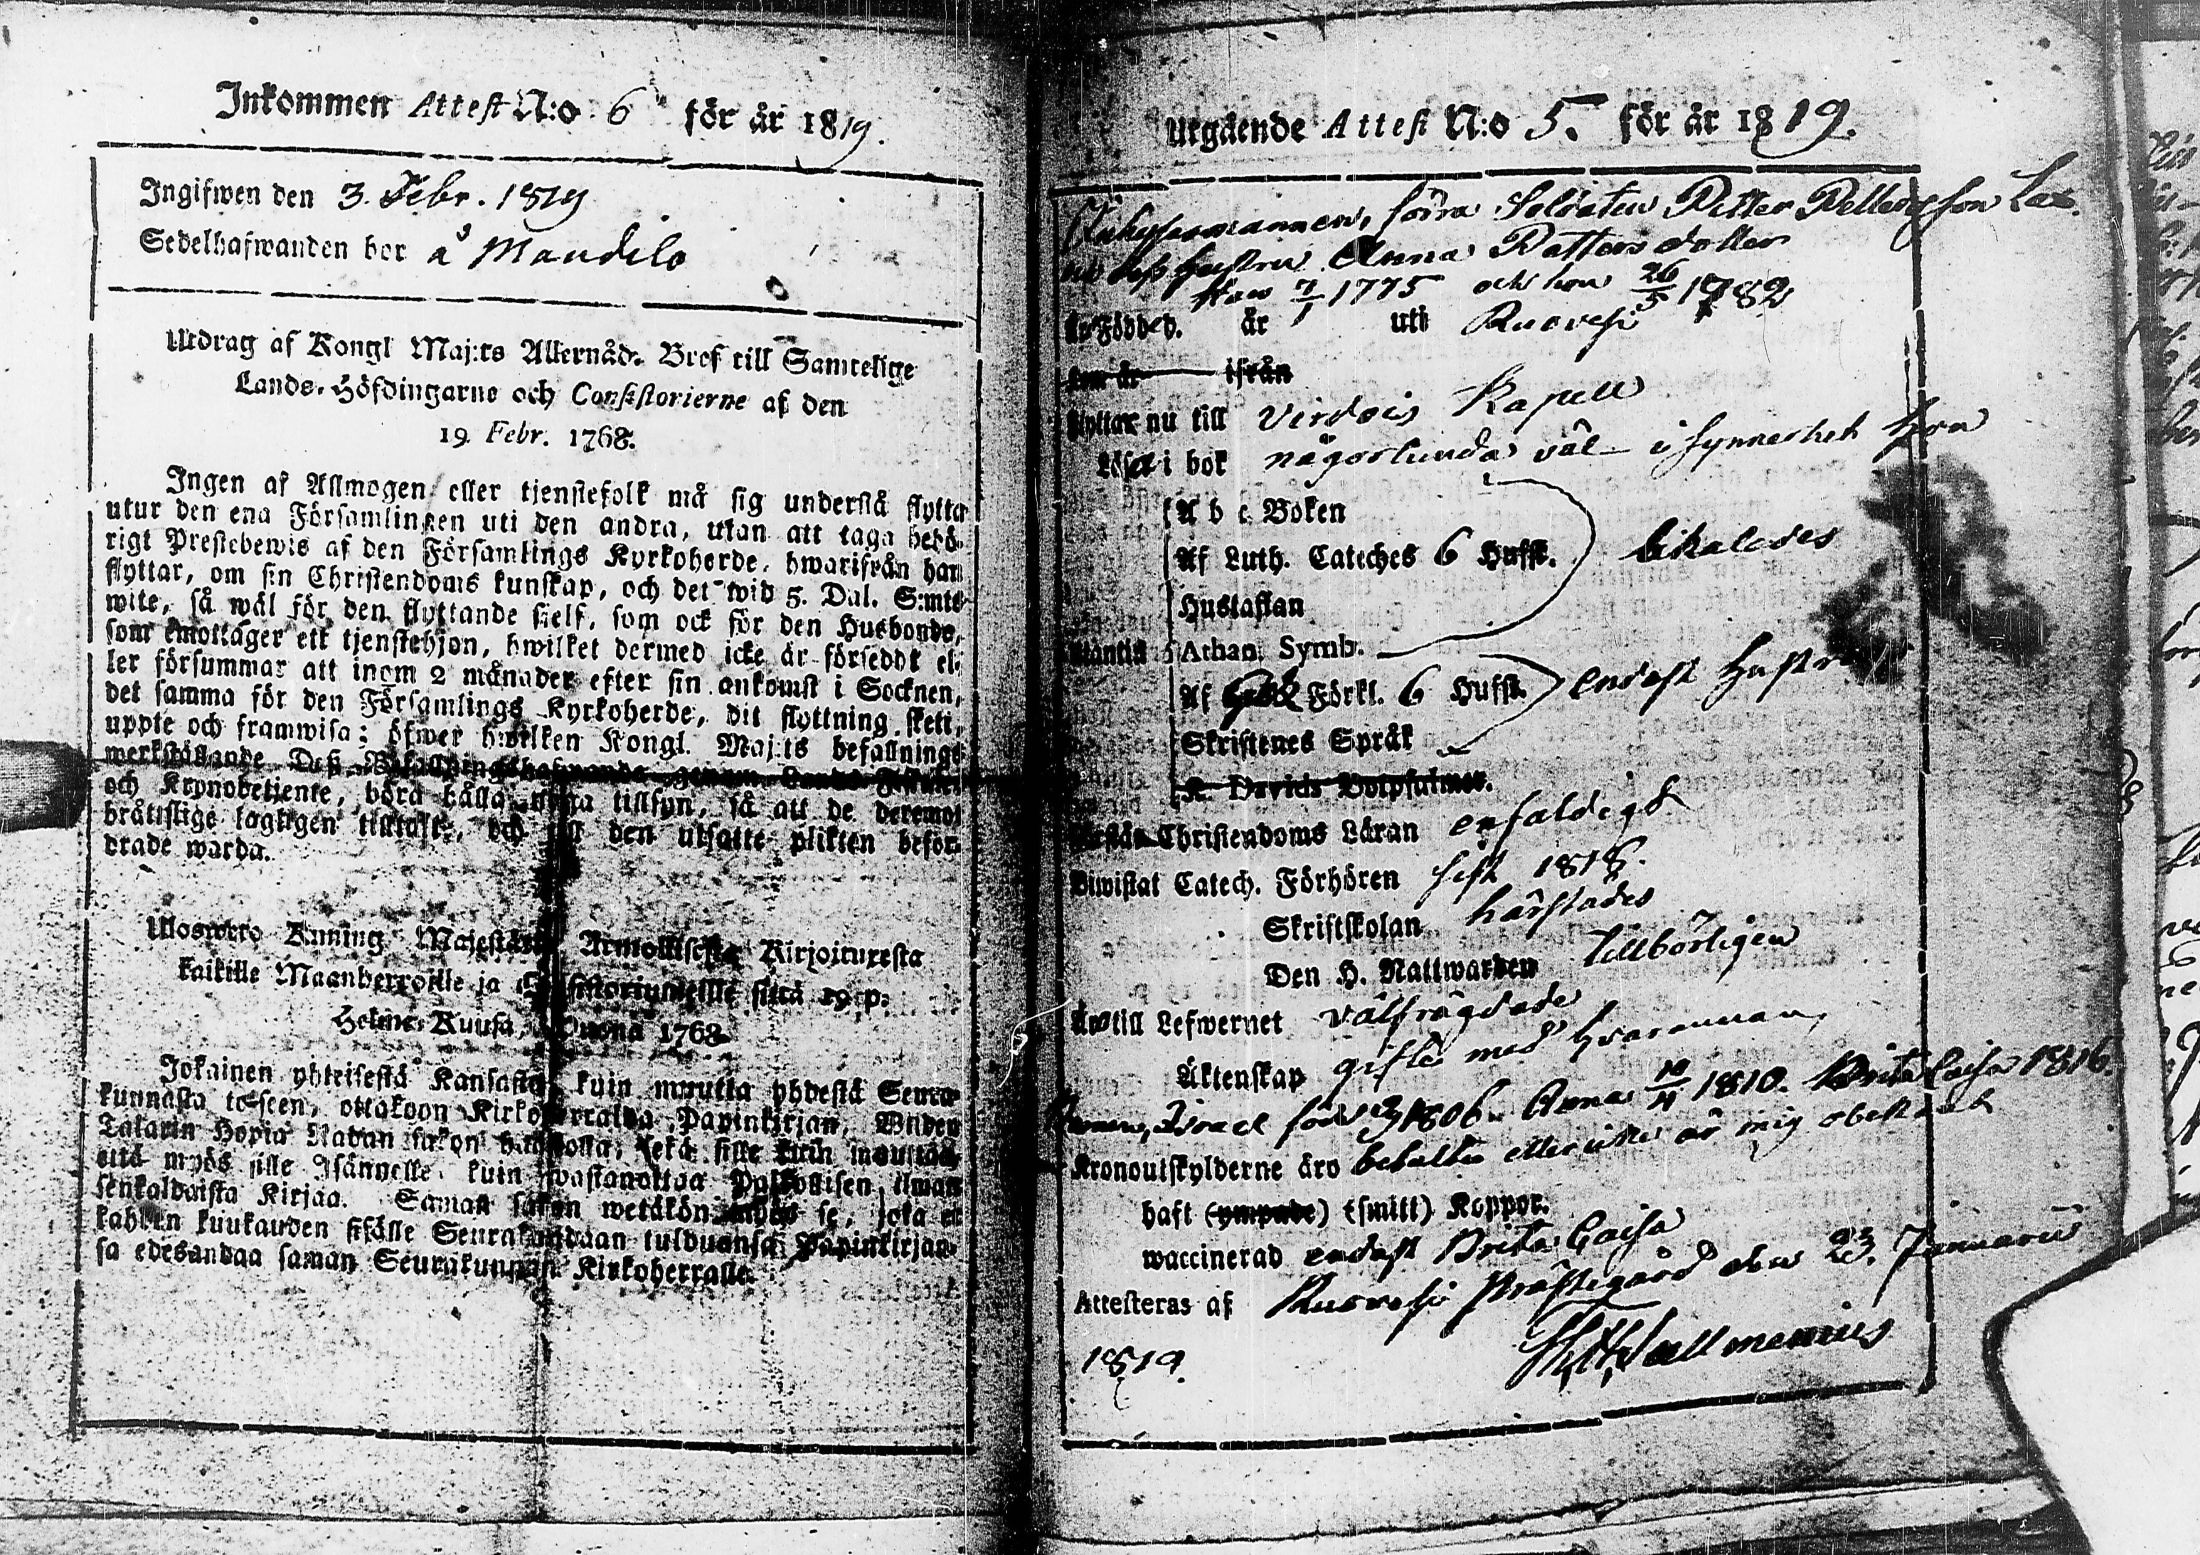 Inkommen Attest N:o 6 för år 1819.
Ingifwen den 3. Febr. 1819
Sedelhafwanden bor å Mandila
Utdrag af Kongl Maj:ts Allernåd. Bref till Samtelige
Lands-Höfdingarne och Consistorierne af den
19 Febr. 1768.
Ingen af Allmogen eller tjenstefolk må sig understå flytta
utur den ena Församlingen uti den andra, utan att taga behö-
rigt Prestebewis af den Församlings Kyrkoherde, hwarifrån han
flyttar, om sin Christendoms kunskap, och det wid 5. Dal. S:mts
wite, så wäl för den flyttande sielf, som ock för den Husbonde,
som emottager ett tjenstehjon, hwilket dermed icke är försedt el-
ler försummar att inom 2 månader efter sin ankomst i Socknen,
det samma för den Församlings Kyrkoherde, dit flyttning skett,
uppte och framwisa; öfwer hwilken Kongl. Maj:ts befallnings
werkställande Deß Befallningshafwande genom Lands Fiskaler
och Kronobetjente, böra hålla noga tillsyn, så att de deremot
bråttslige lagligen tilltalte, och till den utsatte plikten befor-
drade warda.
Uloswero Kuning Majestätin Armollisesta Kirjoituxesta
kaikille Maanherroille ja Consistoriumeille siitä 19 p:
Helme-Kuusa, Wuona 1768.
Jokainen yhteisestä Kansasta, kuin muutta yhdestä Seura-
kunnasta toiseen, ottakoon Kirkoherralda Papinkirjan, Wiiden
Talarin Hopia Rahan sakon haastolla, sekä sille kuin muuttaa
että myös sille Isännelle kuin wastanottaa Palkollisen ilman
senkaldaista Kirjaa. Saman sakon wetäkön myös se, joka ei
kahden kuukauden sisälle Seurakundaan tulduansa Papinkirjaan-
sa edesandaa saman Seurakunnan Kirkoherralle.
Utgående Attest N:o 5. för år 1819.
förra Soldaten Petter Pettersson Lax.
deß hustru Anna Pettersdotter
Han 7/1 1775 och hon 26/5 1782
Född är uti Ruovesi
ifrån
Flyttar nu till Virdois Kapell
Läsa i bok någorlunda väl - i synnerhet hon
A b c Boken
Af Luth. Cateches 6 Hufst. likaledes
Hustaflan
Athan. Symb.
Af Förkl. 6 Hufst. endast hustrun
Skriftenes Språk
K. Davids Botpsalmer.
Förstår Christendoms Läran enfaldigt
Biwistat Catech. Förhören sist 1818.
Skriftskolan härstädes
Den H. Nattwarden tillbörligen
Äro till Lefwernet välfrägdade
Äktenskap gifte med hvarannan,
Israel född 1806. Anna 10/4 1810. Brita Caisa 1816.
Kronoutskylderne äro betalta eller icke är mig obekant
haft (ympade) (smitt) Koppor.
waccinerad endast Brita Caisa
Attesteras af Ruovesi Prästegård den 23. Januarii
1819.